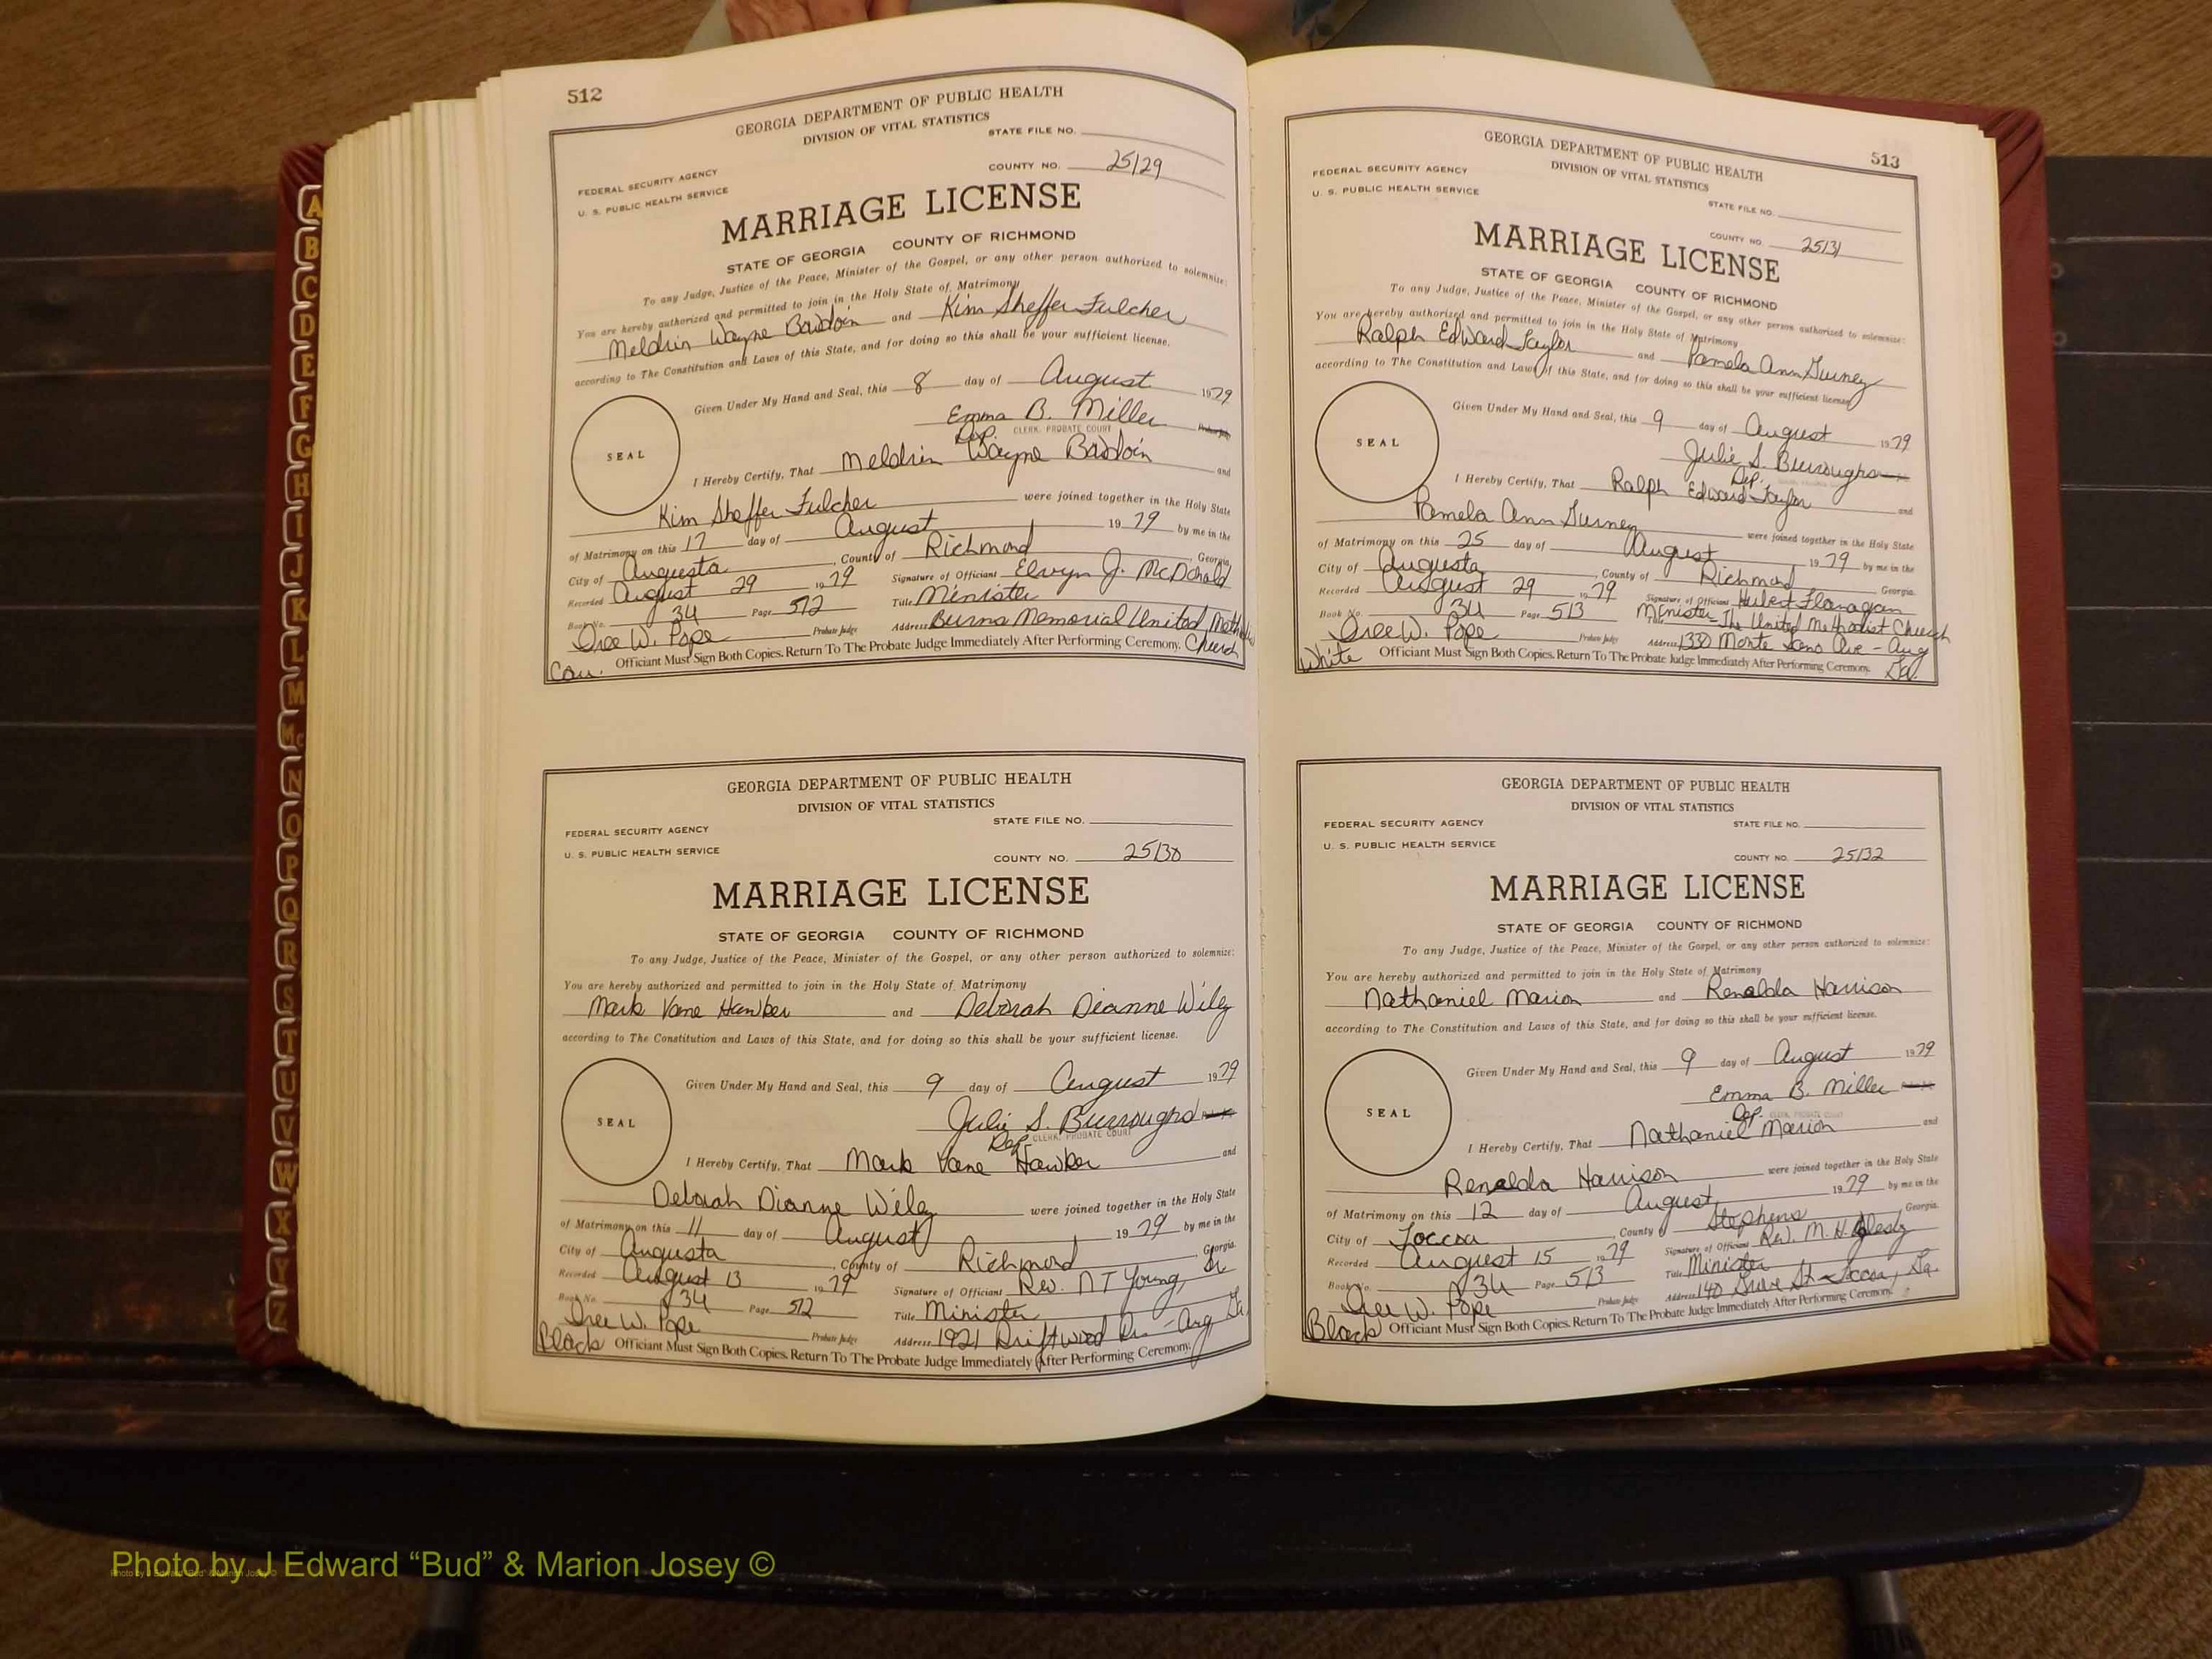 512
GEORGIA DEPARTMENT OF PUBLIC HEALTH
DIVISION OF VITAL STATISTICS
STATE FILE NO.
FEDERAL SECURITY AGENCY
COUNTY NO. 25129
U. S. PUBLIC HEALTH SERVICE
MARRIAGE LICENSE
STATE OF GEORGIA COUNTY OF RICHMOND
To any Judge, Justice of the Peace, Minister of the Gospel, or any other person authorized to solemnize:
You are hereby authorized and permitted to join in the Holy State of Matrimony
Meldrin Wayne Bawdoin and Kim Sheffer Fulcher
according to The Constitution and Laws of this State, and for doing so this shall be your sufficient license.
Given Under My Hand and Seal, this 8 day of August 1979
Emma B. Miller
Dep. CLERK, PROBATE COURT
SEAL
I Hereby Certify, That Meldrin Wayne Bawdoin and
Kim Sheffer Fulcher were joined together in the Holy State
of Matrimony on this 17 day of August 1979 by me in the
City of Augusta, County of Richmond Georgia.
Recorded August 29 1979 Signature of Officiant Elvyn J. McDonald
Book No. 34 Page 512 Title Minister
W. Pope Probate Judge Address Burns Memorial United Meth
Church
Cau. Officiant Must Sign Both Copies. Return To The Probate Judge Immediately After Performing Ceremony.
GEORGIA DEPARTMENT OF PUBLIC HEALTH
DIVISION OF VITAL STATISTICS
STATE FILE NO.
FEDERAL SECURITY AGENCY
U. S. PUBLIC HEALTH SERVICE
COUNTY NO. 25130
MARRIAGE LICENSE
STATE OF GEORGIA COUNTY OF RICHMOND
To any Judge, Justice of the Peace, Minister of the Gospel, or any other person authorized to solemnize:
You are hereby authorized and permitted to join in the Holy State of Matrimony
Mark Vane Hawber and Deborah Dianne Wiley
according to The Constitution and Laws of this State, and for doing so this shall be your sufficient license.
Given Under My Hand and Seal, this 9 day of August 1979
Julie S. Burroughs
Dep. CLERK, PROBATE COURT
SEAL
I Hereby Certify, That Mark Vane Hawber and
Deborah Dianne Wiley were joined together in the Holy State
of Matrimony on this 11 day of August 1979 by me in the
City of Augusta, County of Richmond, Georgia.
Recorded August 13 1979 Signature of Officiant Rev. N T Young, Sr
Book No. 34 Page 512 Title Minister
W. Pope Probate Judge Address 1921 Driftwood Dr. - Aug Ga.
Black Officiant Must Sign Both Copies. Return To The Probate Judge Immediately After Performing Ceremony.
513
GEORGIA DEPARTMENT OF PUBLIC HEALTH
DIVISION OF VITAL STATISTICS
FEDERAL SECURITY AGENCY
U. S. PUBLIC HEALTH SERVICE
STATE FILE NO.
COUNTY NO. 25131
MARRIAGE LICENSE
STATE OF GEORGIA COUNTY OF RICHMOND
To any Judge, Justice of the Peace, Minister of the Gospel, or any other person authorized to solemnize:
You are hereby authorized and permitted to join in the Holy State of Matrimony
Ralph Edward Taylor and Pamela Ann Gurney
according to The Constitution and Laws of this State, and for doing so this shall be your sufficient license
Given Under My Hand and Seal, this 9 day of August 1979
Julie S. Burroughs
Dep.
SEAL
I Hereby Certify, That Ralph Edward Taylor and
Pamela Ann Gurney were joined together in the Holy State
of Matrimony on this 25 day of August 1979 by me in the
City of Augusta, County of Richmond Georgia.
Recorded August 29 1979 Signature of Officiant Hubert Flanagan
Book No. 34 Page 513 Title Minister - The United Methodist Church
W. Pope Probate Judge Address 1330 Monte Sano Ave - Aug
Ga.
White Officiant Must Sign Both Copies. Return To The Probate Judge Immediately After Performing Ceremony.
GEORGIA DEPARTMENT OF PUBLIC HEALTH
DIVISION OF VITAL STATISTICS
FEDERAL SECURITY AGENCY
STATE FILE NO.
U. S. PUBLIC HEALTH SERVICE
COUNTY NO. 25132
MARRIAGE LICENSE
STATE OF GEORGIA COUNTY OF RICHMOND
To any Judge, Justice of the Peace, Minister of the Gospel, or any other person authorized to solemnize:
You are hereby authorized and permitted to join in the Holy State of Matrimony
Nathaniel Marion and Renalda Harrison
according to The Constitution and Laws of this State, and for doing so this shall be your sufficient license.
Given Under My Hand and Seal, this 9 day of August 1979
Emma B. Miller
Dep. CLERK, PROBATE COURT
SEAL
I Hereby Certify, That Nathaniel Marion and
Renalda Harrison were joined together in the Holy State
of Matrimony on this 12 day of August 1979 by me in the
City of Toccoa, County of Stephens Georgia.
Recorded August 15 1979 Signature of Officiant Rev. M. H.
Book No. 34 Page 513 Title Minister
W. Pope Probate Judge Address 140 St - Toccoa, Ga.
Black Officiant Must Sign Both Copies. Return To The Probate Judge Immediately After Performing Ceremony.
A
B
C
D
E
F
G
H
I
J
K
L
M
Mc
N
O
P
Q
R
S
T
U
V
W
X
Y
Z
Photo by J Edward “Bud” & Marion Josey ©